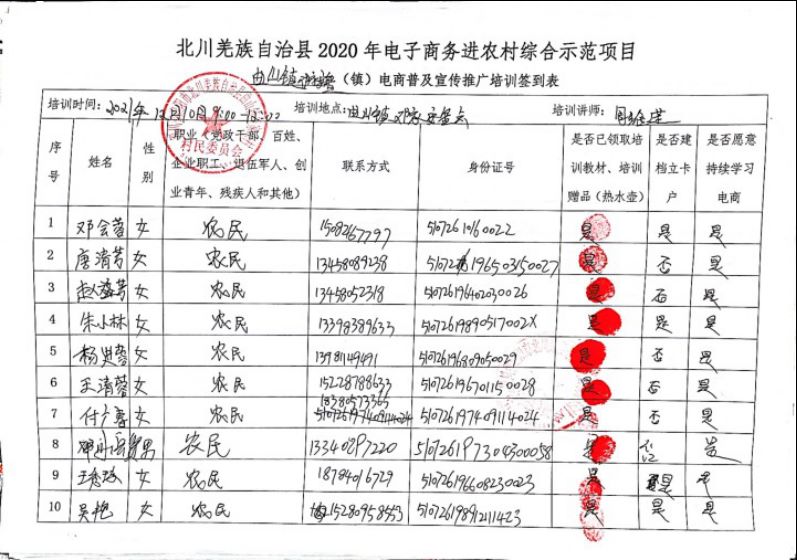 北川羌族自治县 2020 年电子商务进农村综合示范项目
曲山镇（镇）电商普及宣传推广培训签到表
培训时间：2021年12月10日9:00-12:00 培训地点：曲山镇 培训讲师：
序号 姓名 性别 职业（党政干部、百姓、企业职工、退伍军人、创业青年、残疾人和其他） 联系方式 身份证号 是否已领取培训教材、培训赠品（热水壶） 是否建档立卡户 是否愿意持续学习电商
村民委员会
1 邓会蓉 女 农民 15082167797 是 是 是
2 唐清芳 女 农民 13458089238 是 否 是
3 女 农民 13458052318 510726196402030026 是 否 是
4 朱小林 女 农民 13398389633 51072619890517002X 是 是 是
5 女 农民 13981149491 510726196809050029 是 否 是
6 王清蓉 女 农民 15228788633 510726196701150028 是 否 是
18380573365
7 女 农民 510726197409114024 是 否 是
8 男 农民 13340897220 510726197304300058 是 否 是
9 女 农民 18784016729 510726196608230023 是 是
10 吴艳 女 农民 15280958553 是 是 是